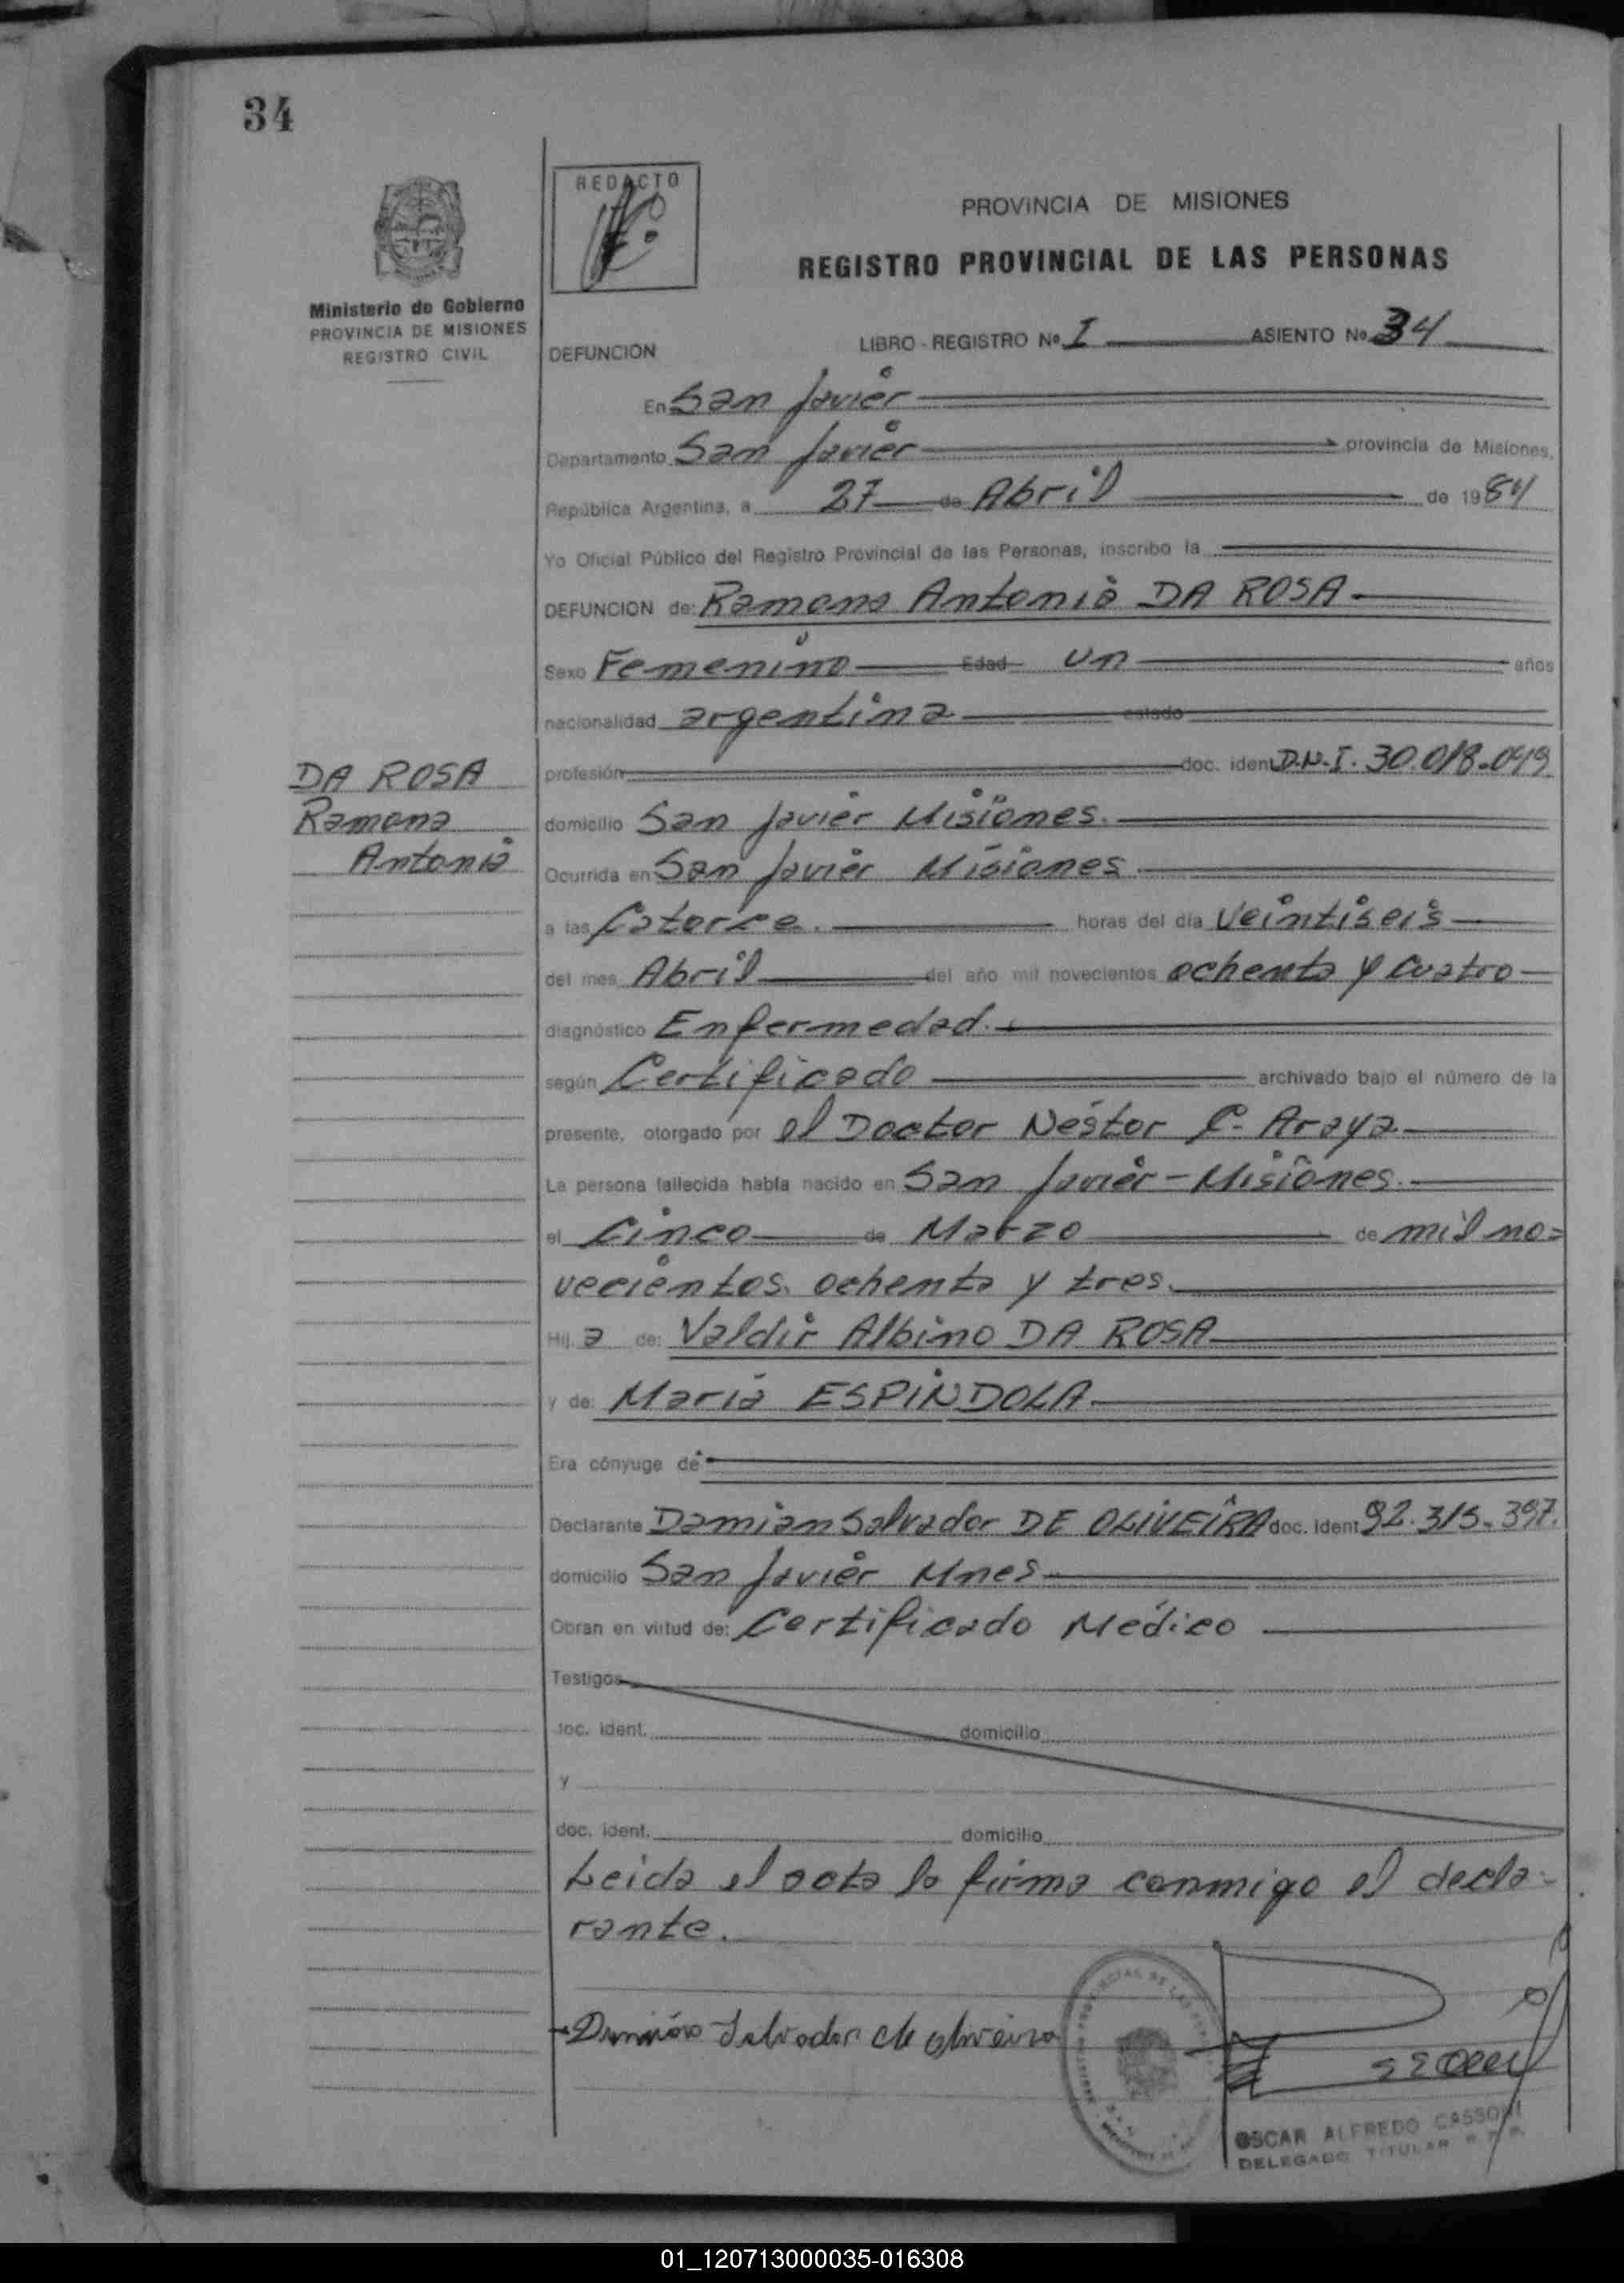 34
REDACTO
PROVINCIA DE MISIONES
REGISTRO PROVINCIAL DE LAS PERSONAS
Ministerio de Gobierno
PROVINCIA DE MISIONES
REGISTRO CIVIL
DEFUNCION LIBRO - REGISTRO Nº I ASIENTO Nº 34
En San Javier
Departamento San Javier provincia de Misiones,
República Argentina, a 27 de Abril de 1984
Yo Oficial Público del Registro Provincial de las Personas, inscribo la
DEFUNCION de: Ramona Antonia DA ROSA
Sexo Femenino Edad un años
nacionalidad argentina estado
DA ROSA
Ramona
Antonia
profesión doc. ident. D.N.I. 30.018.049
domicilio San Javier Misiones.
Ocurrida en San Javier Misiones
a las Catorce. horas del día veintiseis
del mes Abril del año mil novecientos ochenta y cuatro
diagnóstico Enfermedad.
según Certificado archivado bajo el número de la
presente, otorgado por el Doctor Nestor C. Araya
La persona fallecida había nacido en San Javier - Misiones.
el Cinco de Marzo de mil no=
vecientos ochenta y tres.
Hij a de: Valdir Albino DA ROSA
y de: Maria ESPINDOLA
Era cónyuge de
Declarante Damian Salvador DE OLIVEIRA doc. ident 92.315.397.
domicilio San Javier Mnes
Obran en virtud de: Certificado Médico
Testigos
doc. ident. domicilio
y
doc. ident. domicilio
Leida el acta la firma conmigo el decla-
rante.
Damián Salvador de oliveira
OSCAR ALFREDO CASSONI
DELEGADO TITULAR R. P. P.
01_120713000035-016308